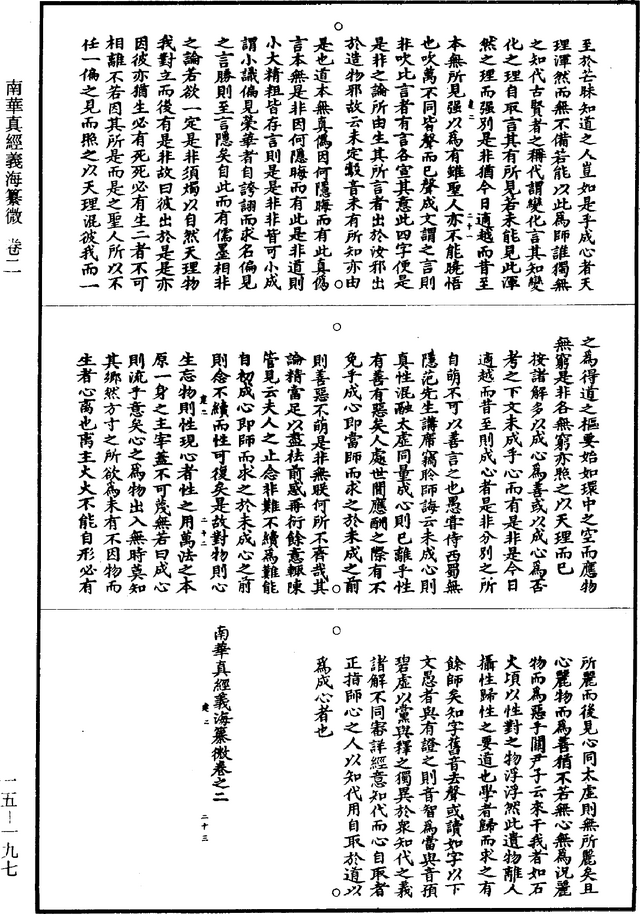 南華真經義海纂微　卷二
至於芒昧知道之人豈如是乎成心者天
理渾然而無不備若能以此為師誰獨無
之知代古賢者之稱代謂變化言其知變
化之理自取言其有所見若未能見此渾
然之理而强別是非猶今日適越而昔至
本無所見强以為有雖聖人亦不能曉悟
也吹萬不同皆聲而已聲成文謂之言則
非吹比言者有言各宣其意此四字便是
是非之論所由生其所言者出於汝邪出
於造物邪故云未定鷇音未有所知亦由
是也道本無真偽因何隱晦而有此真偽
言本無是非因何隱晦而有此是非道則
小大精粗皆存言則是是非非皆可小成
謂小識偏見榮華者自誇詡而求名偏見
之言勝則至言隱矣自此而有儒墨相非
之論若欲一定是非須燭以自然天理物
我對立而後有是非故曰彼出於是是亦
因彼亦猶生必有死死必有生二者不可
相離不若因其所是而是之聖人所以不
任一偏之見而照之以天理混彼我而一
之為得道之樞要始如環中之空而應物
無窮是非各無窮亦照之以天理而已
按諸解多以成心為善或以成心為否
考之下文未成乎心而有是非是今日
適越而昔至則成心者是非分別之所
自萌不可以善言之也愚嘗侍西蜀無
隱范先生講席竊聆師誨云未成心則
真性混融太虛同量成心則已離乎性
有善有惡矣人處世間應酬之際有不
免乎成心即當師而求之於未成之前
則善惡不萌是非無眹何所不齊哉其
論精當足以盡祛前惑再衍餘意輒陳
管見云夫人之止念非難不續為難能
自初成心即師而求之於未成心之前
則念不續而性可復矣是故對物則心
生忘物則性現心者性之用萬法之本
原一身之主宰蓋不可蔑無若曰成心
則流乎意矣心之為物出入無時莫知
其鄉然方寸之所欲為未有不因物而
生者心离也离主大火不能自形必有
所麗而後見心同太虛則無所麗矣且
心麗物而為善猶不若無心無為況麗
物而為惡乎關尹子云來干我者如石
火頃以性對之物浮浮然此遺物離人
攝性歸性之要道也學者歸而求之有
餘師矣知字舊音去聲或讀如字以下
文愚者與有證之則音智為當與音預
碧虛以黨與釋之獨異於衆知代之義
諸解不同審詳經意知代而心自取者
正指師心之人以知代用自取於道以
為成心者也
南華真經義海纂微卷之二
二十一
二十二
二十三
一五—一九七